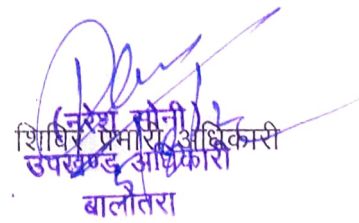 (नरेश सोनी)
शिविर प्रभारी अधिकारी
उपखण्ड अधिकारी
बालोतरा